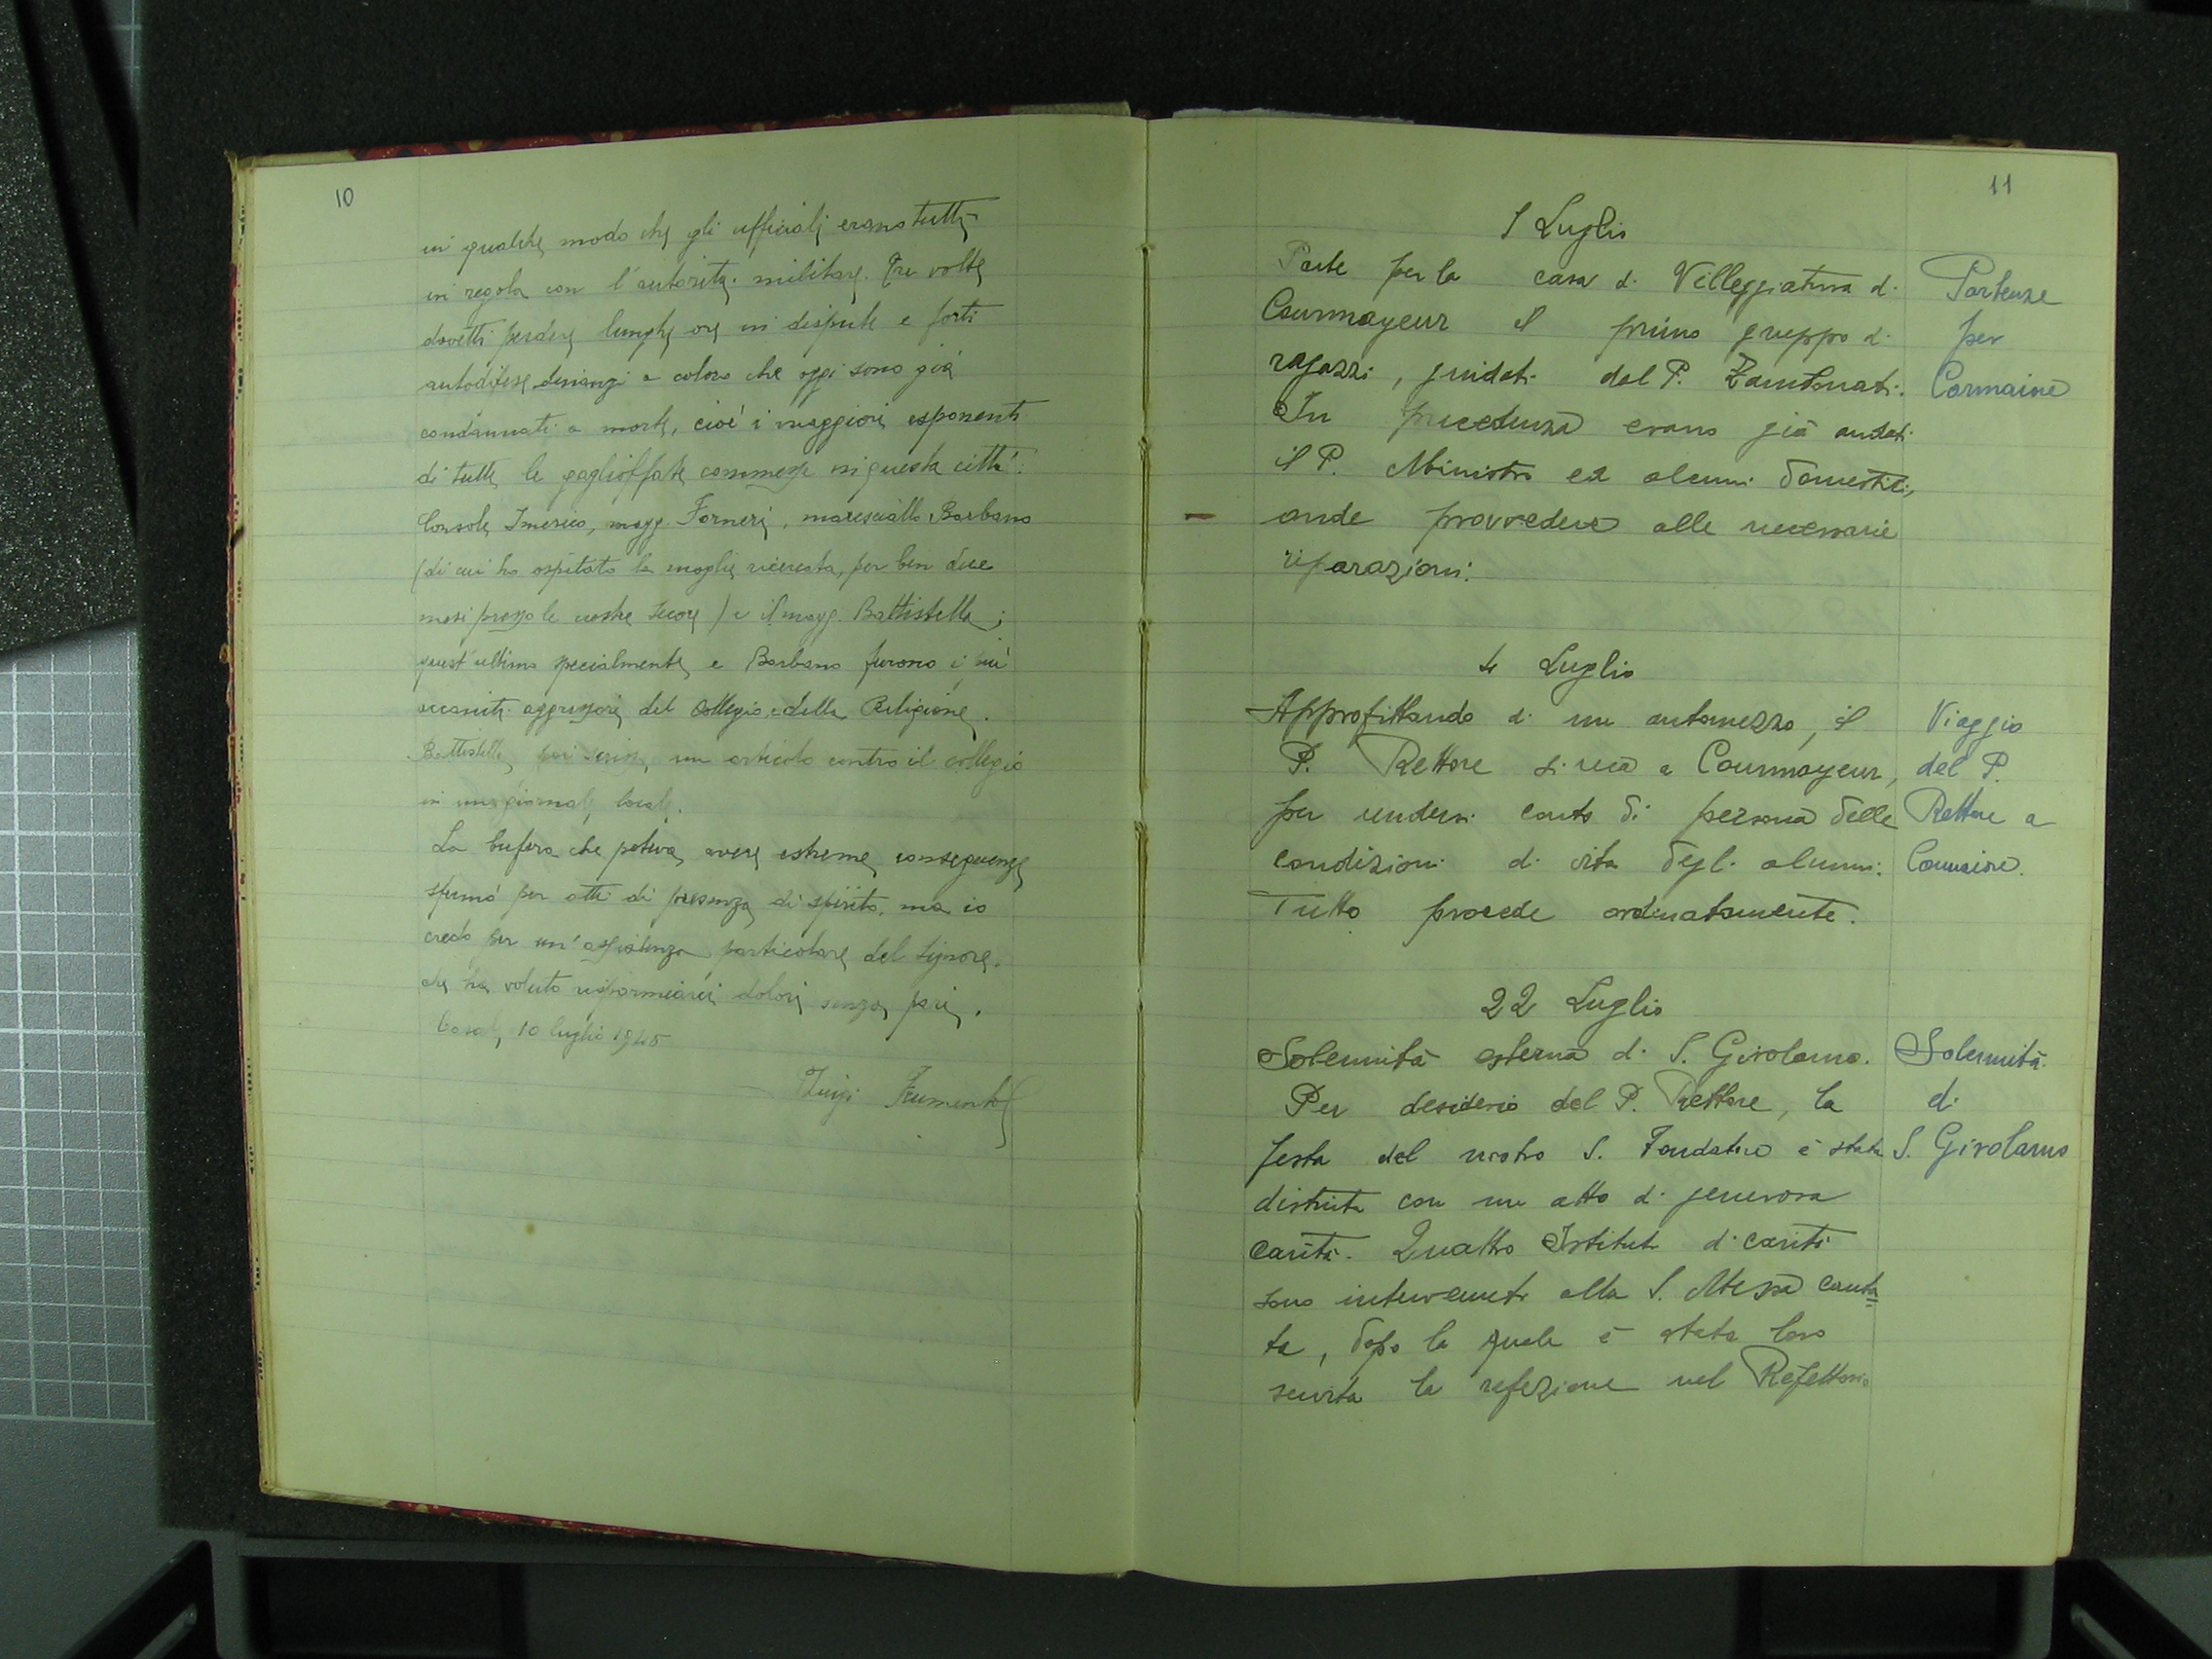 10
in qualche modo che gli ufficiali erano tutti
in regola con l'autorità militare. Tre volte
dovetti perdere lunghe ore in dispute e forti
autodifese dinanzi a coloro che oggi sono già
condannati a morte, cioè i maggiori esponenti
di tutte le gaglioffate commesse in questa città:
Console Imerico, magg. Forneri, maresciallo Barbano
(di cui ho ospitato la moglie ricercata, per ben due
mesi presso le nostre Suore) e il magg. Battistella;
quest'ultimo specialmente e Barbano furono i più
accaniti aggressori del Collegio e della Religione.
Battistella poi scrisse un articolo contro il collegio
in un giornale locale.
La bufera che poteva avere estreme conseguenze
sfumò per atti di presenza di spirito, ma io
credo per un'assistenza particolare del Signore,
che ha voluto risparmiarci dolori senza pari.
Casale, 10 luglio 1945
Luigi Frumento
11
1 Luglio
Parte per la casa di Villeggiatura di
Courmayeur il primo gruppo di
ragazzi, guidati dal P. Zambonati.
In precedenza erano già andati
il P. Ministro ed alcuni domestici,
onde provvedere alle necessarie
riparazioni.
Partenze
per
Cormaiore
4 Luglio
Approfittando di un automezzo, il
P. Rettore si reca a Courmayeur,
per rendersi conto di persona delle
condizioni di vita degli alunni.
Tutto procede ordinatamente.
Viaggio
del P.
Rettore a
22 Luglio
Solennità esterna di S. Girolamo.
Per desiderio del P. Rettore, la
festa del nostro S. Fondatore è stata
distinta con un atto di generosa
carità. Quattro Istituti di carità
sono intervenuti alla S. Messa canta=
ta, dopo la quale è stata loro
servita la refezione nel Refettorio
Solennità
di
S. Girolamo